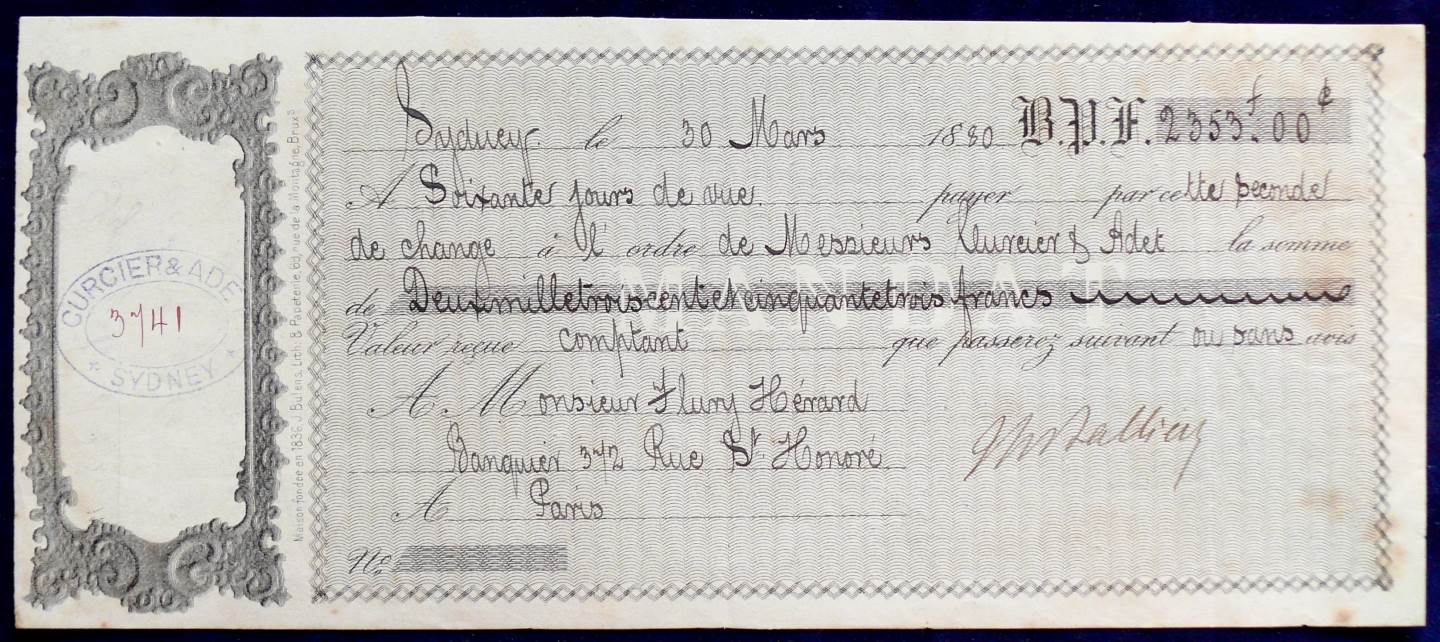 CURCIER & ADE
3741
SYDNEY
Maison fondée en 1836. J. Butens. Lith. & Papeterie, 60, rue de la Montagne, Brux.
Sydney. le 30 Mars 1880 B.P.F. 2353.f 00 c
A Soixante jours de vue. payer par cette seconde
de change à l'ordre de Messieurs Curcier & Adet la somme
de Deux mille trois cent et cinquante trois francs
MANDAT
Valeur reçue comptant que passerez suivant ou sans avis
A. Monsieur Flury Hérard
Banquier 372 Rue St. Honoré
A Paris
No.